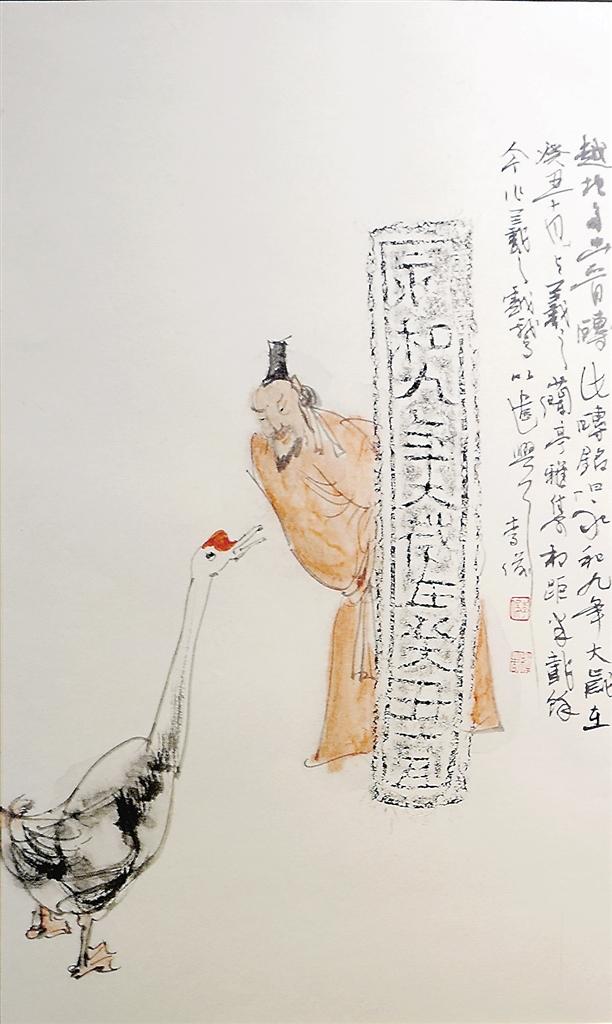 越地多出晉磚此磚銘曰永和九年大歲在
癸丑十月与羲之蘭亭雅集相距半載餘
今作羲之戲鵝以遣興
永和九年大歲在癸丑